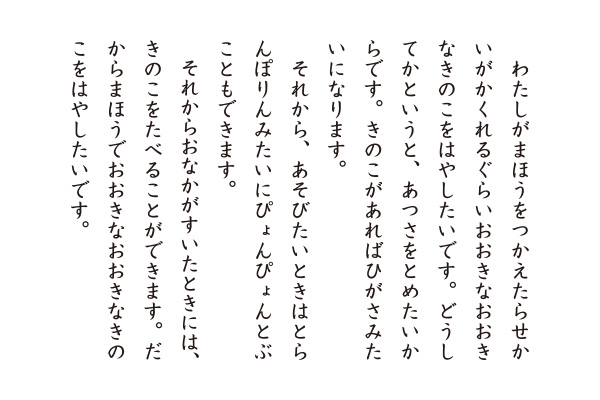 わたしがまほうをつかえたらせか
いがかくれるぐらいおおきなおおき
なきのこをはやしたいです。どうし
てかというと、あつさをとめたいか
らです。きのこがあればひがさみた
いになります。
　それから、あそびたいときはとら
んぽりんみたいにぴょんぴょんとぶ
こともできます。
　それからおなかがすいたときには、
きのこをたべることができます。だ
からまほうでおおきなおおきなきの
こをはやしたいです。